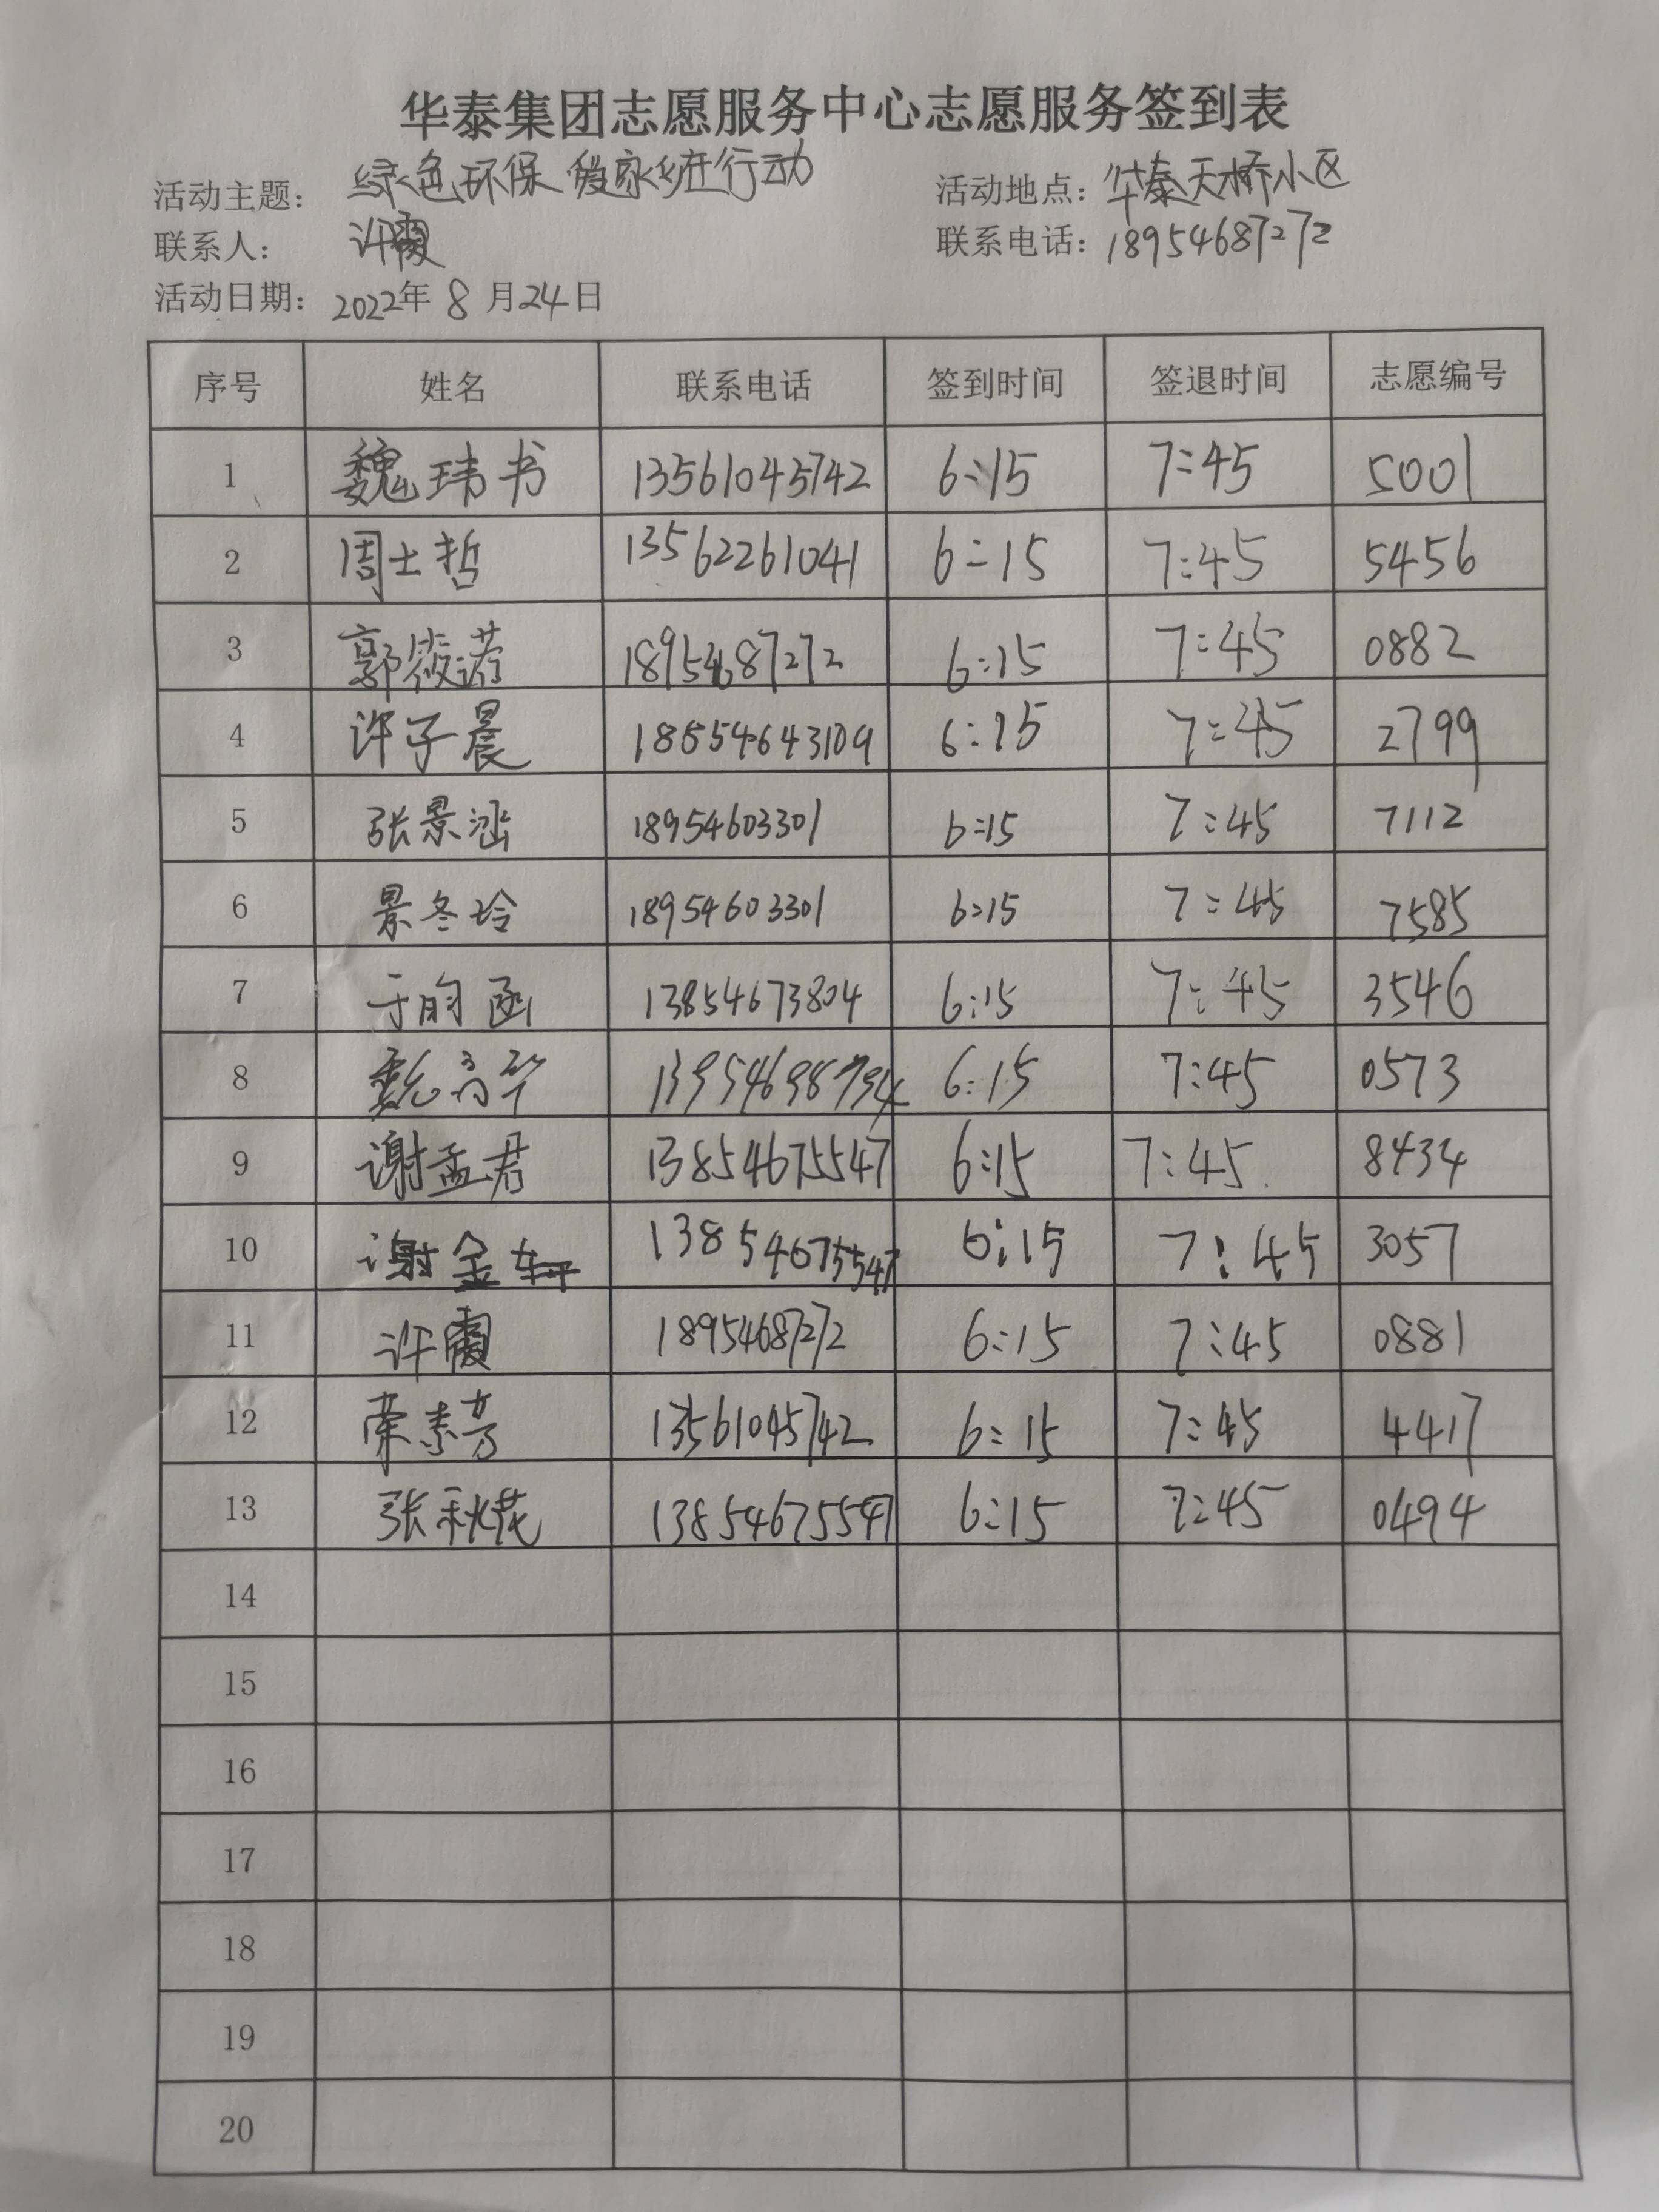 华泰集团志愿服务中心志愿服务签到表
活动主题： 绿色环保 爱家乡在行动 活动地点：华泰天桥小区
联系人： 许霞 联系电话：18954687272
活动日期： 2022年 8 月24日
序号 姓名 联系电话 签到时间 签退时间 志愿编号
1 魏玮书 13561045742 6:15 7:45 5001
2 周士哲 13562261041 6:15 7:45 5456
3 郭筱诺 18954687272 6:15 7:45 0882
4 许子晨 18554643109 6:15 7:45 2799
5 张景涵 18954603301 6:15 7:45 7112
6 景冬玲 18954603301 6:15 7:45 7585
7 于昀函 13854673804 6:15 7:45 3546
8 魏高华 13954698794 6:15 7:45 0573
9 谢孟君 13854675547 6:15 7:45 8434
10 谢金轩 13854675547 6:15 7:45 3057
11 许霞 18954687272 6:15 7:45 0881
12 荣素芳 13561045742 6:15 7:45 4417
13 张秋花 13854675547 6:15 7:45 0494
14
15
16
17
18
19
20